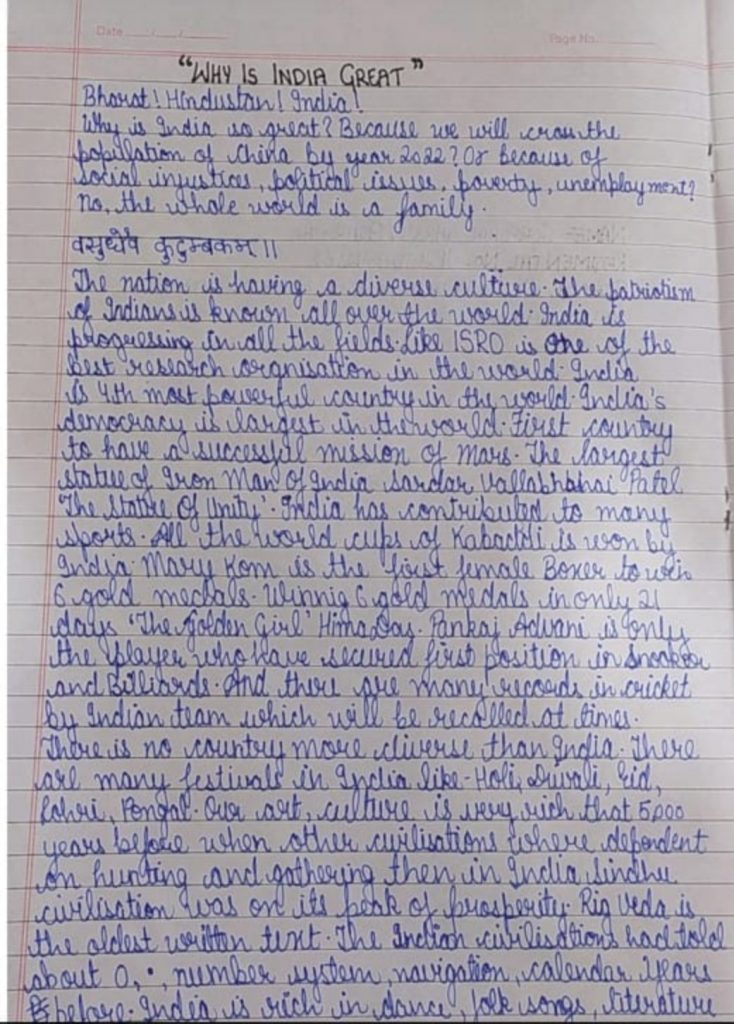 Date ___/___/___
Page No. ______
"WHY IS INDIA GREAT"
Bharat! Hindustan! India!
Why is India so great? Because we will cross the
population of China by year 2022? Or because of
social injustices, political issues, poverty, unemployment?
No, the whole world is a family.
वसुधैव कुटुम्बकम् ।।
The nation is having a diverse culture. The patriotism
of Indians is known all over the world. India is
progressing in all the fields like ISRO is one of the
best research orgnisation in the world. India
is 4th most powerful country in the world. India's
democracy is largest in the world. First country
to have a successful mission of Mars. The largest
statue of Iron Man Of India Sardar Vallabhbhai Patel
'The Statue Of Unity'. India has contributed to many
sports. All the world cups of Kabaddi is won by
India. Mary Kom is the first female Boxer to win
6 gold medals. Winnig 6 gold medals in only 21
days 'The Golden Girl' Hima Das. Pankaj Advani is only
the player who have secured first position in Snooker
and Billiards. And there are many records in cricket
by Indian team which will be recalled at times.
There is no country more diverse than India. There
are many festivals in India like - Holi, Diwali, Eid,
Lohri, Pongal. Our art, culture is very rich that 5000
years before when other civilisations where dependent
on hunting and gathering then in India Sindhu
civilisation was on its peak of prosperity. Rig Veda is
the oldest written text. The Indian civilisations had told
about 0, ., number system, navigation, calendar years
before. India is rich in dance, folk songs, literature